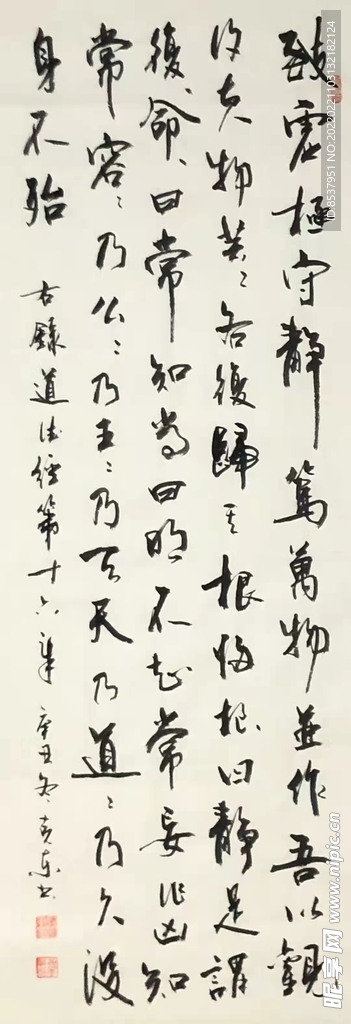 致虚極守靜篤萬物並作吾以觀
復夫物芸〻各復歸其根归根曰靜是謂
復〻命〻曰常知常曰明不知常妄作凶知
常容〻乃公〻乃王〻乃天天乃道〻乃久沒
身不殆
右錄道德經第十六章
辛丑冬克東書
ID:8537951 NO:20220221103132182124
昵享网 www.nipic.cn